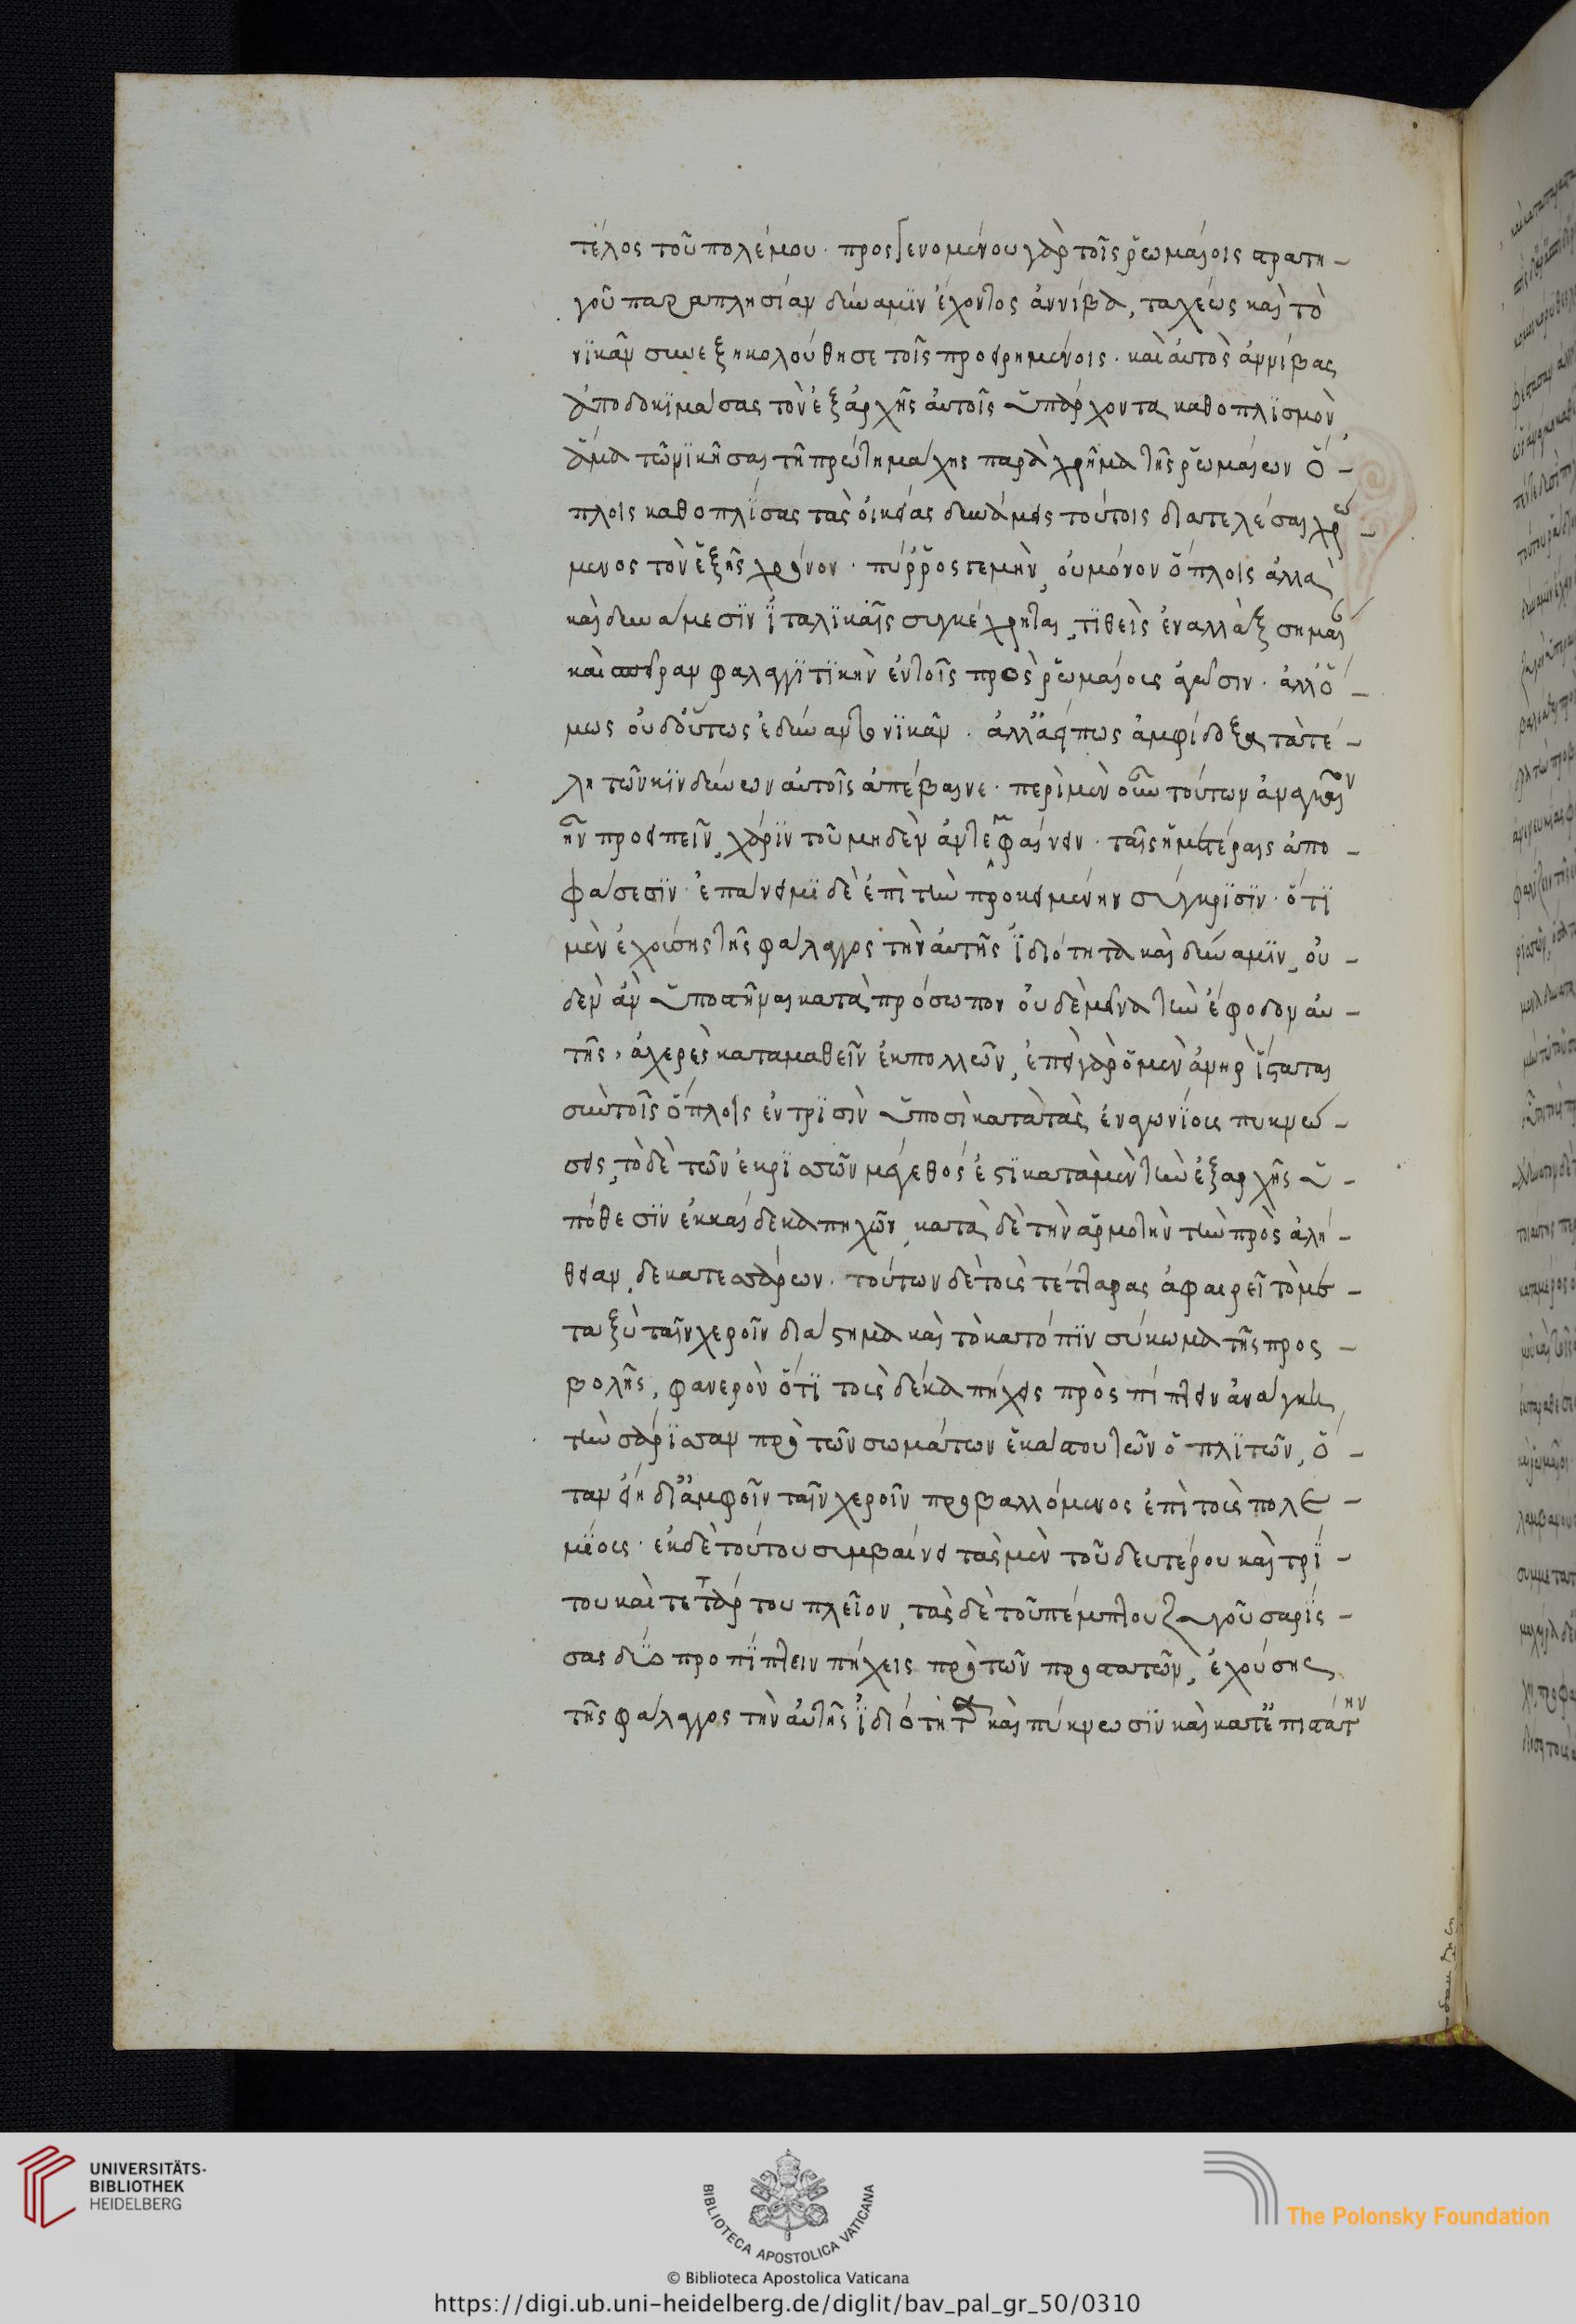 τέλος τοῦ πολέμου· προσγενομένου γὰρ τοῖς ῥωμαίοις στρατη-
γοῦ παραπλησίαν δύναμιν ἔχοντος ἀννίβᾳ, ταχέως καὶ τὸ
νικᾶν συνεξηκολούθησε τοῖς προειρημένοις· καὶ αὐτὸς ἀννίβας
ἀποδοκιμάσας τὸν ἐξ ἀρχῆς αὐτοῖς ὑπάρχοντα καθοπλισμὸν,
ἅμα τῶ νικῆσαι τῆ πρώτη μάχης παραχρῆμα τῆς ῥωμαίων ὅ-
πλοις καθοπλίσας τὰς οἰκείας δυνάμεις τούτοις διατελέσαι χρώ-
μενος τὸν ἑξῆς χρόνον· πύρρος γε μὴν, οὐ μόνον ὅπλοις ἀλλὰ
καὶ δυνάμεσιν ἰταλικαῖς συγκέχρηται, τιθεὶς ἐναλλὰξ σημαίαν
καὶ σπεῖραν φαλαγγιτικὴν ἐν τοῖς πρὸς ῥωμαίους ἀγῶσιν· ἀλλ' ὅ-
μως οὐδ' οὕτως ἐδύνατο νικᾶν· ἀλλ' ἀεί πως ἀμφίδοξα τὰ τέ-
λη τῶν κινδύνων αὐτοῖς ἀπέβαινε· περὶ μὲν οὖν τούτων ἀναγκαῖον
ἦν προειπεῖν, χάριν τοῦ μηδὲν ἀντεμφαίνειν· ταῖς ἡμετέραις ἀπο-
φάσεσιν· ἐπάνειμι δὲ ἐπὶ τὴν προκειμένην σύγκρισιν· ὅτι
μὲν ἐχούσης τῆς φάλαγγος τὴν αὑτῆς ἰδιότητα καὶ δύναμιν, οὐ-
δὲν ἂν ὑποστῆναι κατὰ πρόσωπον οὐδὲ μεῖναι τὴν ἔφοδον αὐ-
τῆς, εὐχερὲς καταμαθεῖν ἐκ πολλῶν, ἐπεὶ γὰρ ὁ μὲν ἀνὴρ ἵσταται
σὺν τοῖς ὅπλοις ἐν τρισὶν ὑποσὶ κατὰ τὰς ἐναγωνίους πυκνώ-
σεις, τὸ δὲ τῶν ἐκρισσῶν μέγεθός ἐστι κατὰ μὲν τὴν ἐξ ἀρχῆς ὑ-
πόθεσιν ἑκκαίδεκα πηχῶν, κατὰ δὲ τὴν ἁρμογὴν τὴν πρὸς ἀλή-
θειαν, δεκατεσσάρων· τούτων δὲ τοὺς τέτταρας ἀφαιρεῖ τὸ με-
ταξὺ ταῖν χεροῖν διάστημα καὶ τὸ κατόπιν σήκωμα τῆς προς-
βολῆς, φανερὸν ὅτι τοὺς δέκα πήχεις πρὸς πίπτειν ἀνάγκη,
τὴν σάρισσαν πρὸ τῶν σωμάτων ἑκάστου τῶν ὁπλιτῶν, ὅ-
ταν ἴη δι' ἀμφοῖν ταῖν χεροῖν προβαλλόμενος ἐπὶ τοὺς πολε-
μίους· ἐκ δὲ τούτου συμβαίνει τὰς μὲν τοῦ δευτέρου καὶ τρί-
του καὶ τετάρτου πλεῖον, τὰς δὲ τοῦ πέμπτου ζυγοῦ σαρίς-
σας δύο προπίπτειν πήχεις πρὸ τῶν πρωτοστατῶν, ἐχούσης
τῆς φάλαγγος τὴν αὑτῆς ἰδιότητα καὶ πύκνωσιν καὶ κατ' ἐπιστάτην
UNIVERSITÄTS-
BIBLIOTHEK
HEIDELBERG
BIBLIOTECA APOSTOLICA VATICANA
The Polonsky Foundation
© Biblioteca Apostolica Vaticana
https://digi.ub.uni-heidelberg.de/diglit/bav_pal_gr_50/0310